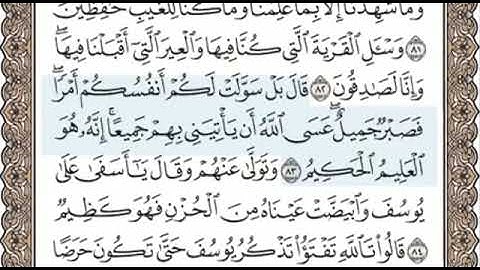 وَمَا شَهِدْنَا إِلَّا بِمَا عَلِمْنَا وَمَا كُنَّا لِلْغَيْبِ حَٰفِظِينَ
۝٨١ وَسْـَٔلِ ٱلْقَرْيَةَ ٱلَّتِى كُنَّا فِيهَا وَٱلْعِيرَ ٱلَّتِىٓ أَقْبَلْنَا فِيهَا ۖ
وَإِنَّا لَصَٰدِقُونَ ۝٨٢ قَالَ بَلْ سَوَّلَتْ لَكُمْ أَنفُسُكُمْ أَمْرًا ۖ
فَصَبْرٌ جَمِيلٌ ۖ عَسَى ٱللَّهُ أَن يَأْتِيَنِى بِهِمْ جَمِيعًا ۚ إِنَّهُۥ هُوَ
ٱلْعَلِيمُ ٱلْحَكِيمُ ۝٨٣ وَتَوَلَّىٰ عَنْهُمْ وَقَالَ يَٰٓأَسَفَىٰ عَلَىٰ
يُوسُفَ وَٱبْيَضَّتْ عَيْنَاهُ مِنَ ٱلْحُزْنِ فَهُوَ كَظِيمٌ
۝٨٤ قَالُوا۟ تَٱللَّهِ تَفْتَؤُا۟ تَذْكُرُ يُوسُفَ حَتَّىٰ تَكُونَ حَرَضًا